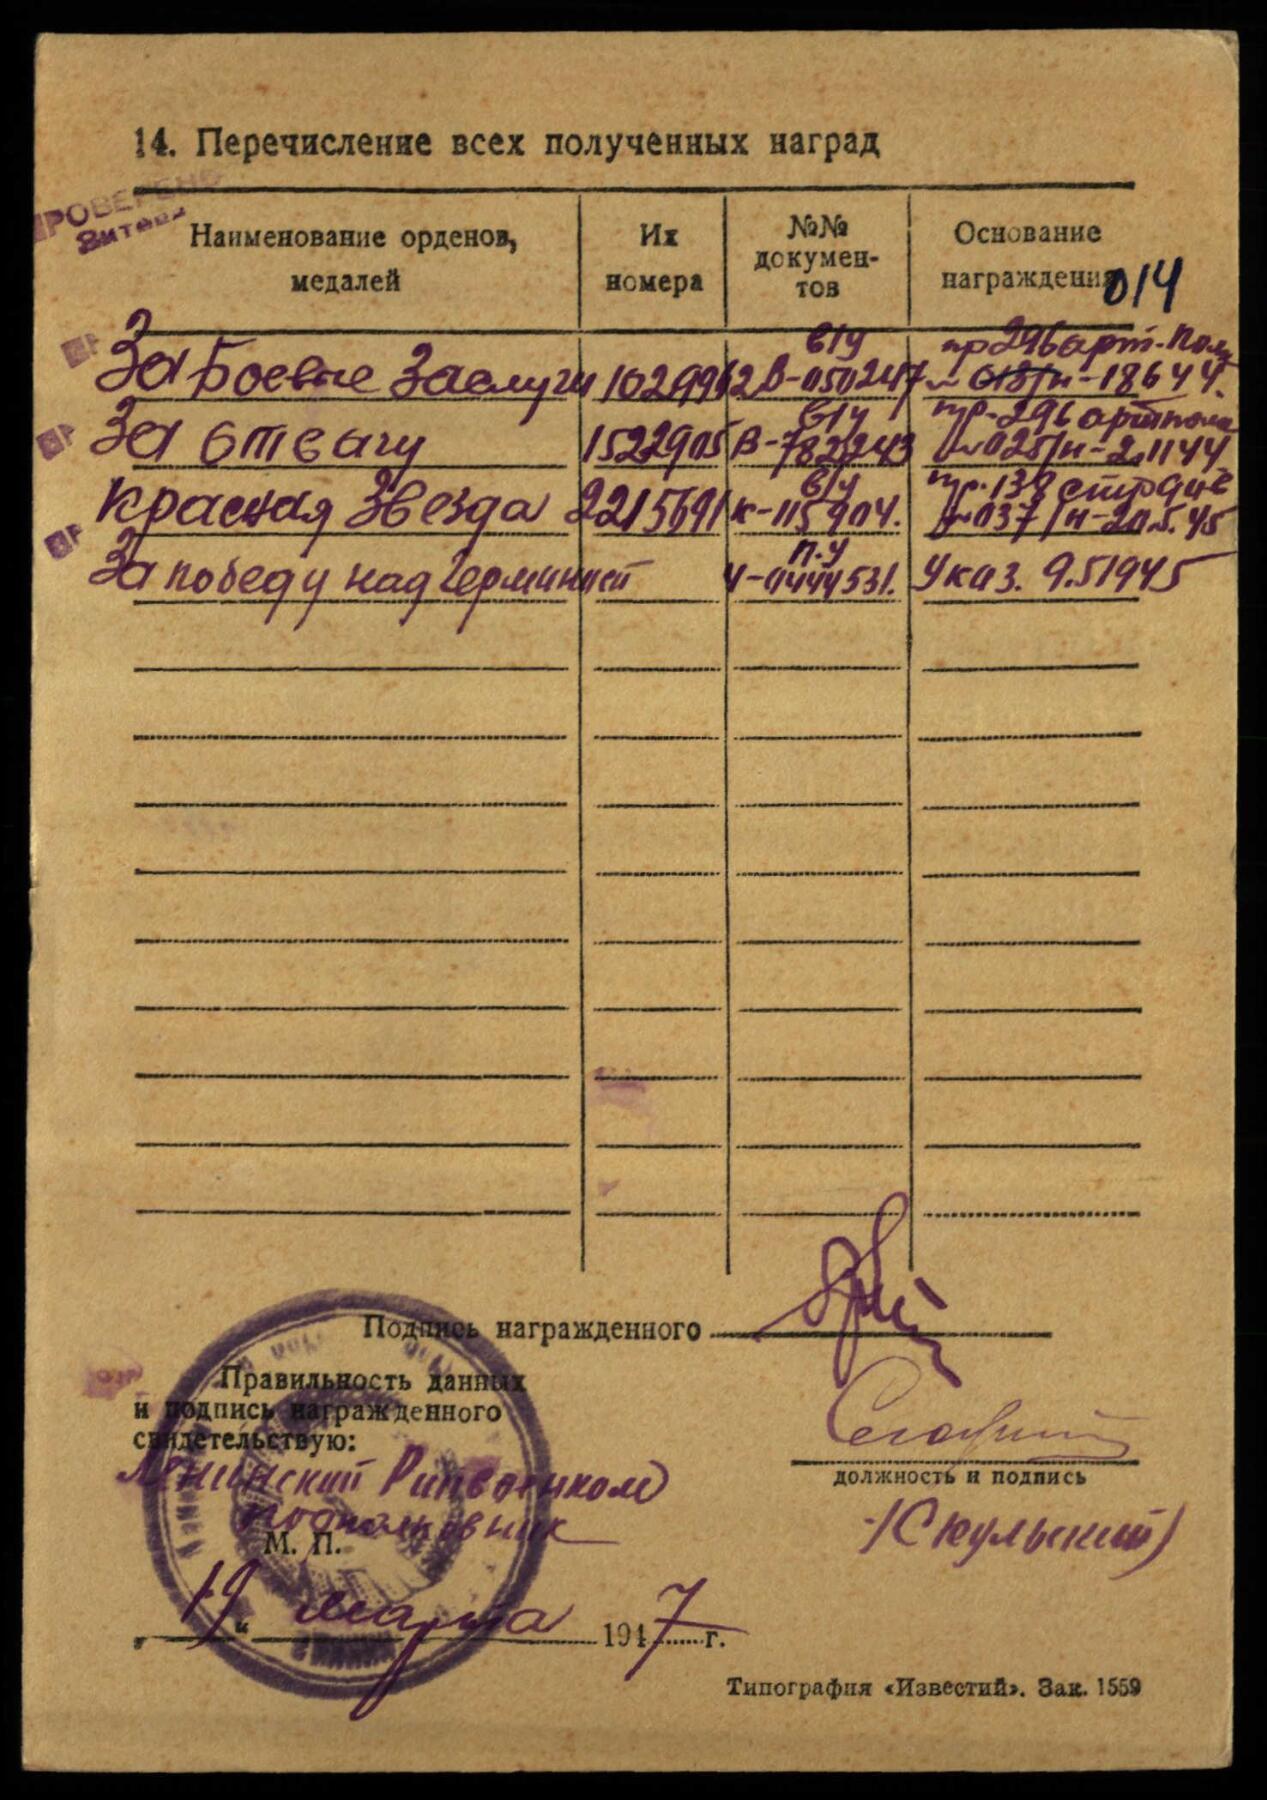 14. Перечисление всех полученных наград
ПРОВЕРЕНО
Наименование орденов,
медалей
Их
номера
№№
докумен-
тов
Основание
награждения
014
За Боевые Заслуги 1029962 в/у В-050247 пр 296 арт. полк № 013/н - 18 6 44.
За отвагу 1522905 в/у В-782243 пр. 296 артполка № 025/н - 2.11 44
Красная Звезда 2215691 в/у К-115904. пр. 138 стр див № 037/н - 20.5.45
За победу над Германией П.У Ч-0444531. Указ. 9.5 1945
Подпись награжденного
Правильность данных
и подпись награжденного
свидетельствую:
Ленинский Райвоенком
подполковник
должность и подпись
/Скульский/
М. П.
„19“ марта 1947 г.
Типография «Известий». Зак. 1559